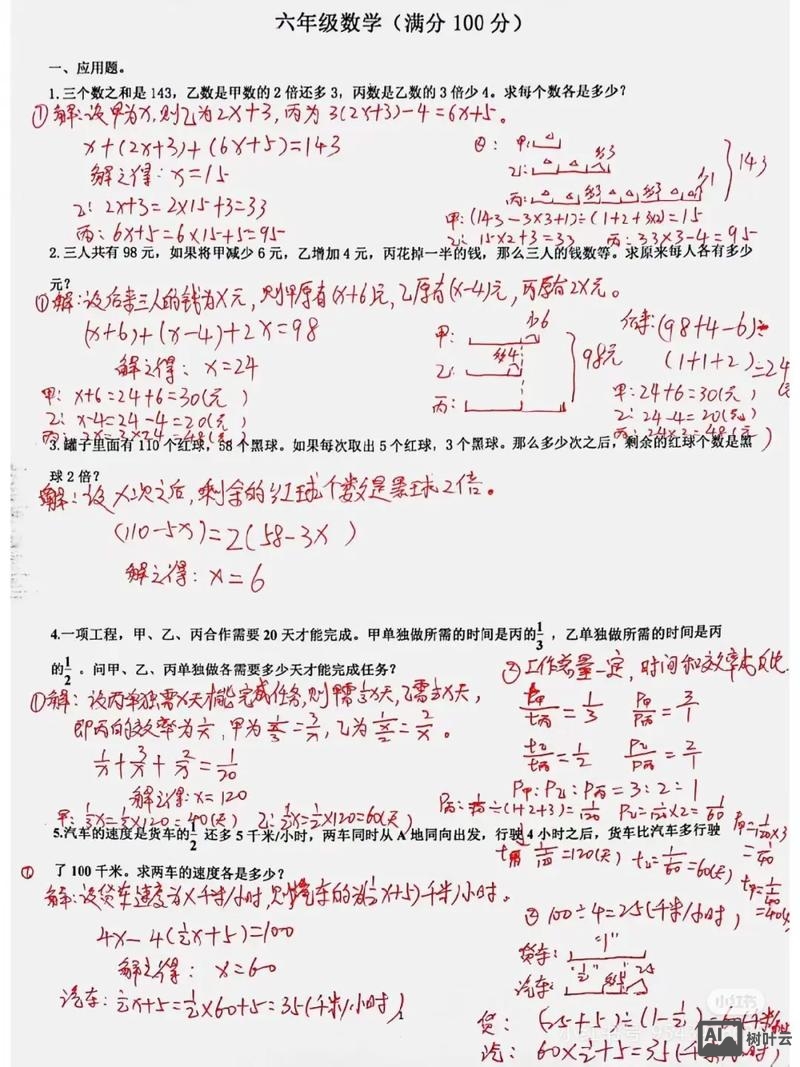 六年级数学（满分 100 分）
一、应用题。
1.三个数之和是 143，乙数是甲数的 2 倍还多 3，丙数是乙数的 3 倍少 4。求每个数各是多少？
①解：设甲为x，则乙为2x+3，丙为 3(2x+3)-4=6x+5。
x+(2x+3)+(6x+5)=143
解之得：x=15
乙：2x+3=2×15+3=33
丙：6x+5=6×15+5=95
②：甲：
乙：
丙：
143
甲：(143-3×3+1)÷(1+2+3×2)=15
乙：15×2+3=33 丙：33×3-4=95
2.三人共有 98 元，如果将甲减少 6 元，乙增加 4 元，丙花掉一半的钱，那么三人的钱数等。求原来每人各有多少
元？
①解：设后来三人的钱为x元，则甲原有(x+6)元，乙原有(x-4)元，丙原有2x元。
(x+6)+(x-4)+2x=98
解之得：x=24
甲：x+6=24+6=30(元)
乙：x-4=24-4=20(元)
丙：2x=2×24=48(元)
甲：
乙：
丙：
98元
后来：(98+4-6)÷
(1+1+2)=24
甲：24+6=30(元)
乙：24-4=20(元)
丙：24×2=48(元)
3.罐子里面有 110 个红球，58 个黑球。如果每次取出 5 个红球，3 个黑球。那么多少次之后，剩余的红球个数是黑
球 2 倍？
解：设x次之后，剩余的红球个数是黑球2倍。
(110-5x)=2(58-3x)
解之得：x=6
4.一项工程，甲、乙、丙合作需要 20 天才能完成。甲单独做所需的时间是丙的1/3，乙单独做所需的时间是丙
的1/2。问甲、乙、丙单独做各需要多少天才能完成任务？
①解：设丙单独需x天才能完成任务，则甲需1/3x天，乙需1/2x天，
即丙的效率为1/x，甲为1/(x/3)=3/x，乙为1/(x/2)=2/x。
1/x+3/x+2/x=1/20
解之得：x=120
甲：1/3x=1/3×120=40(天) 乙：1/2x=1/2×120=60(天)
②工作总量一定，时间和效率成反比
t甲/t丙=1/3 P甲/P丙=3/1
t乙/t丙=1/2 P乙/P丙=2/1
P甲：P乙：P丙=3：2：1
P丙：1/20÷(1+2+3)=1/120 P乙=1/120×2=1/60
P甲=1/120×3
=1/40
=120(天) =60(天)
5.汽车的速度是货车的1/2 还多 5 千米/小时，两车同时从 A 地同向出发，行驶 4 小时之后，货车比汽车多行驶
了 100 千米。求两车的速度各是多少？
①
解：设货车速度为x千米/小时，则汽车的为(1/2x+5)千米/小时。
4x-4(1/2x+5)=100
解之得：x=60
汽车：1/2x+5=1/2×60+5=35(千米/小时)
②100÷4=25(千米/小时)
货车：“1”
汽车：“1/2”
货：(25+5)÷(1-1/2)
汽：60×1/2+5=35(千米/小时)
小红书
AI
树叶云